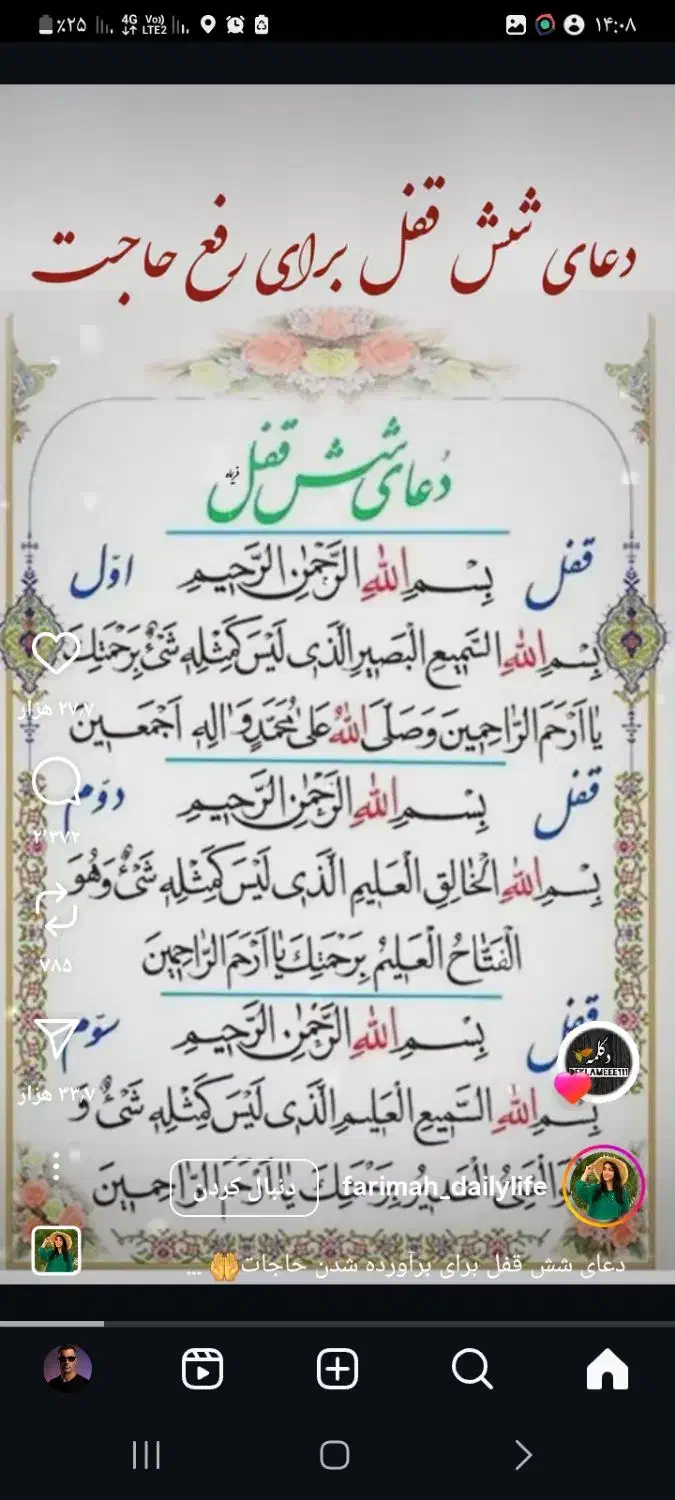 ٪۲۵ 4G Vo)) LTE2 ۱۴:۰۸
دعای شش قفل برای رفع حاجت
دُعای شش قفل
قفل اوّل
بِسْمِ اللهِ الرَّحْمٰنِ الرَّحیمِ
بِسْمِ اللهِ السَّمیعِ الْبَصیرِ الَّذی لَیْسَ کَمِثْلِهِ شَیْءٌ بِرَحْمَتِكَ
یٰا اَرْحَمَ الرّٰاحِمینَ وَ صَلَّی اللهُ عَلیٰ مُحَمَّدٍ وَ اٰلِهِ اَجْمَعین
قفل دوّم
بِسْمِ اللهِ الرَّحْمٰنِ الرَّحیمِ
بِسْمِ اللهِ الْخٰالِقِ الْعَلیمِ الَّذی لَیْسَ کَمِثْلِهِ شَیْءٌ وَهُوَ
الْفَتّٰاحُ الْعَلیمُ بِرَحْمَتِكَ یٰا اَرْحَمَ الرّٰاحِمینَ
قفل سوّم
بِسْمِ اللهِ الرَّحْمٰنِ الرَّحیمِ
بِسْمِ اللهِ السَّمیعِ الْعَلیمِ الَّذی لَیْسَ کَمِثْلِهِ شَیْءٌ وَ
الرّٰاحِمینَ
۲۷٫۷ هزار
۲٬۳۷۲
۷۸۵
۳۳٫۷ هزار
دکلمه
DEKLAMEEE111
farimah_dailylife
دنبال کردن
دعای شش قفل برای برآورده شدن حاجات🤲 ...